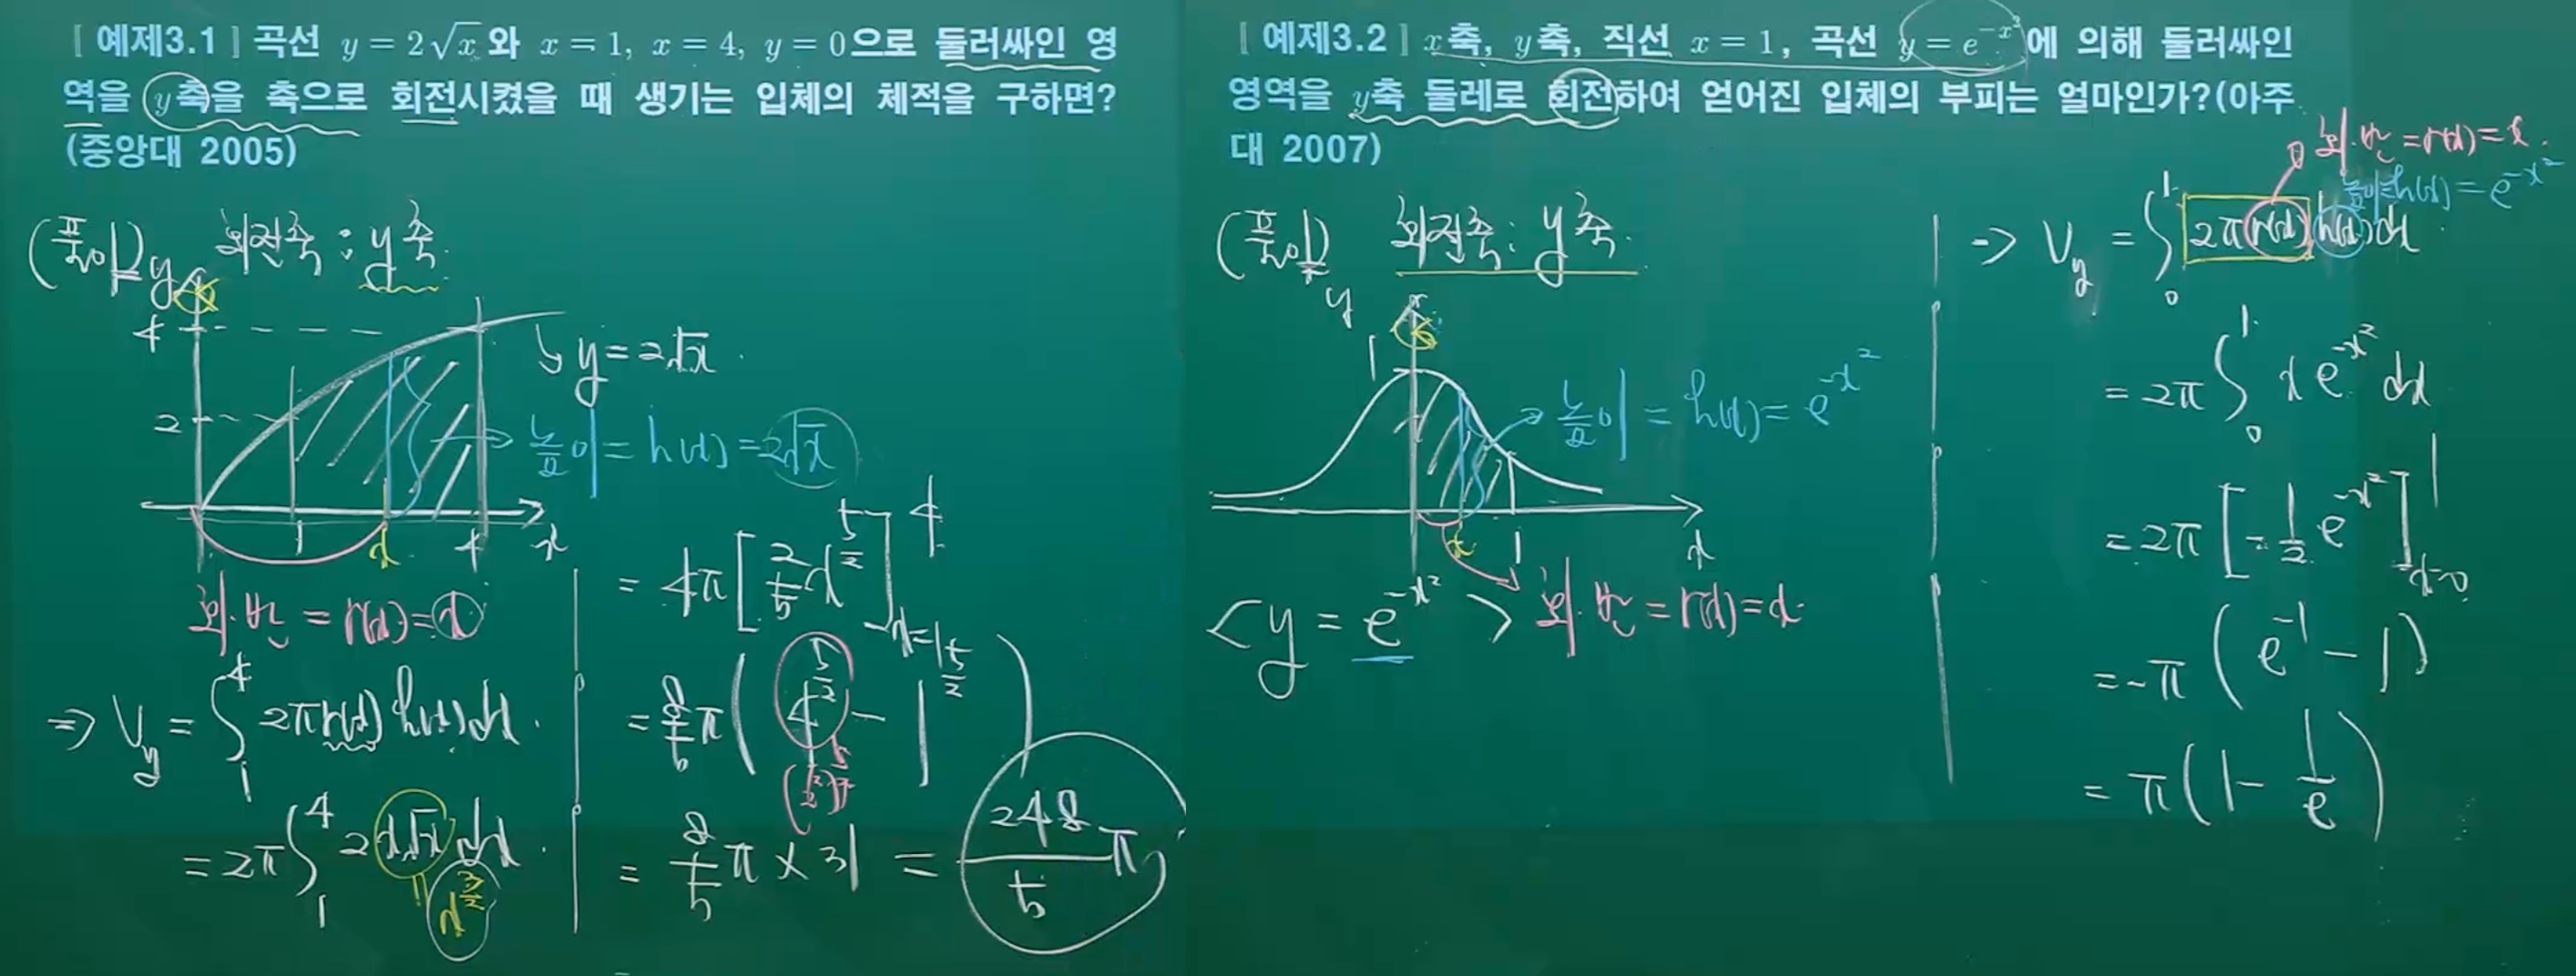 [ 예제3.1 ] 곡선 y = 2√x 와 x = 1, x = 4, y = 0으로 둘러싸인 영
역을 y축을 축으로 회전시켰을 때 생기는 입체의 체적을 구하면?
(중앙대 2005)
(풀이) 회전축 : y축
y
4
y = 2√x
2
높이 = h(x) = 2√x
1 x 4 x
회.반 = r(x) = x
⇒ V_y = ∫_1^4 2π r(x) h(x) dx
= 2π ∫_1^4 2 x√x dx
x^{3/2}
= 4π [ 2/5 x^{5/2} ]_{x=1}^4
= 8/5 π ( 4^{5/2} − 1^{5/2} )
(2²)^{5/2}
= 8/5 π × 31 = 248/5 π
[ 예제3.2 ] x축, y축, 직선 x = 1, 곡선 y = e^{-x²}에 의해 둘러싸인
영역을 y축 둘레로 회전하여 얻어진 입체의 부피는 얼마인가?(아주
대 2007)
(풀이) 회전축 : y축
y
1
높이 = h(x) = e^{-x²}
x 1 x
<y = e^{-x²}> 회.반 = r(x) = x
회.반 = r(x) = x
높이 = h(x) = e^{-x²}
⇒ V_y = ∫_0^1 2π r(x) h(x) dx
= 2π ∫_0^1 x e^{-x²} dx
= 2π [ -1/2 e^{-x²} ]_{x=0}^1
= -π ( e^{-1} − 1 )
= π ( 1 − 1/e )